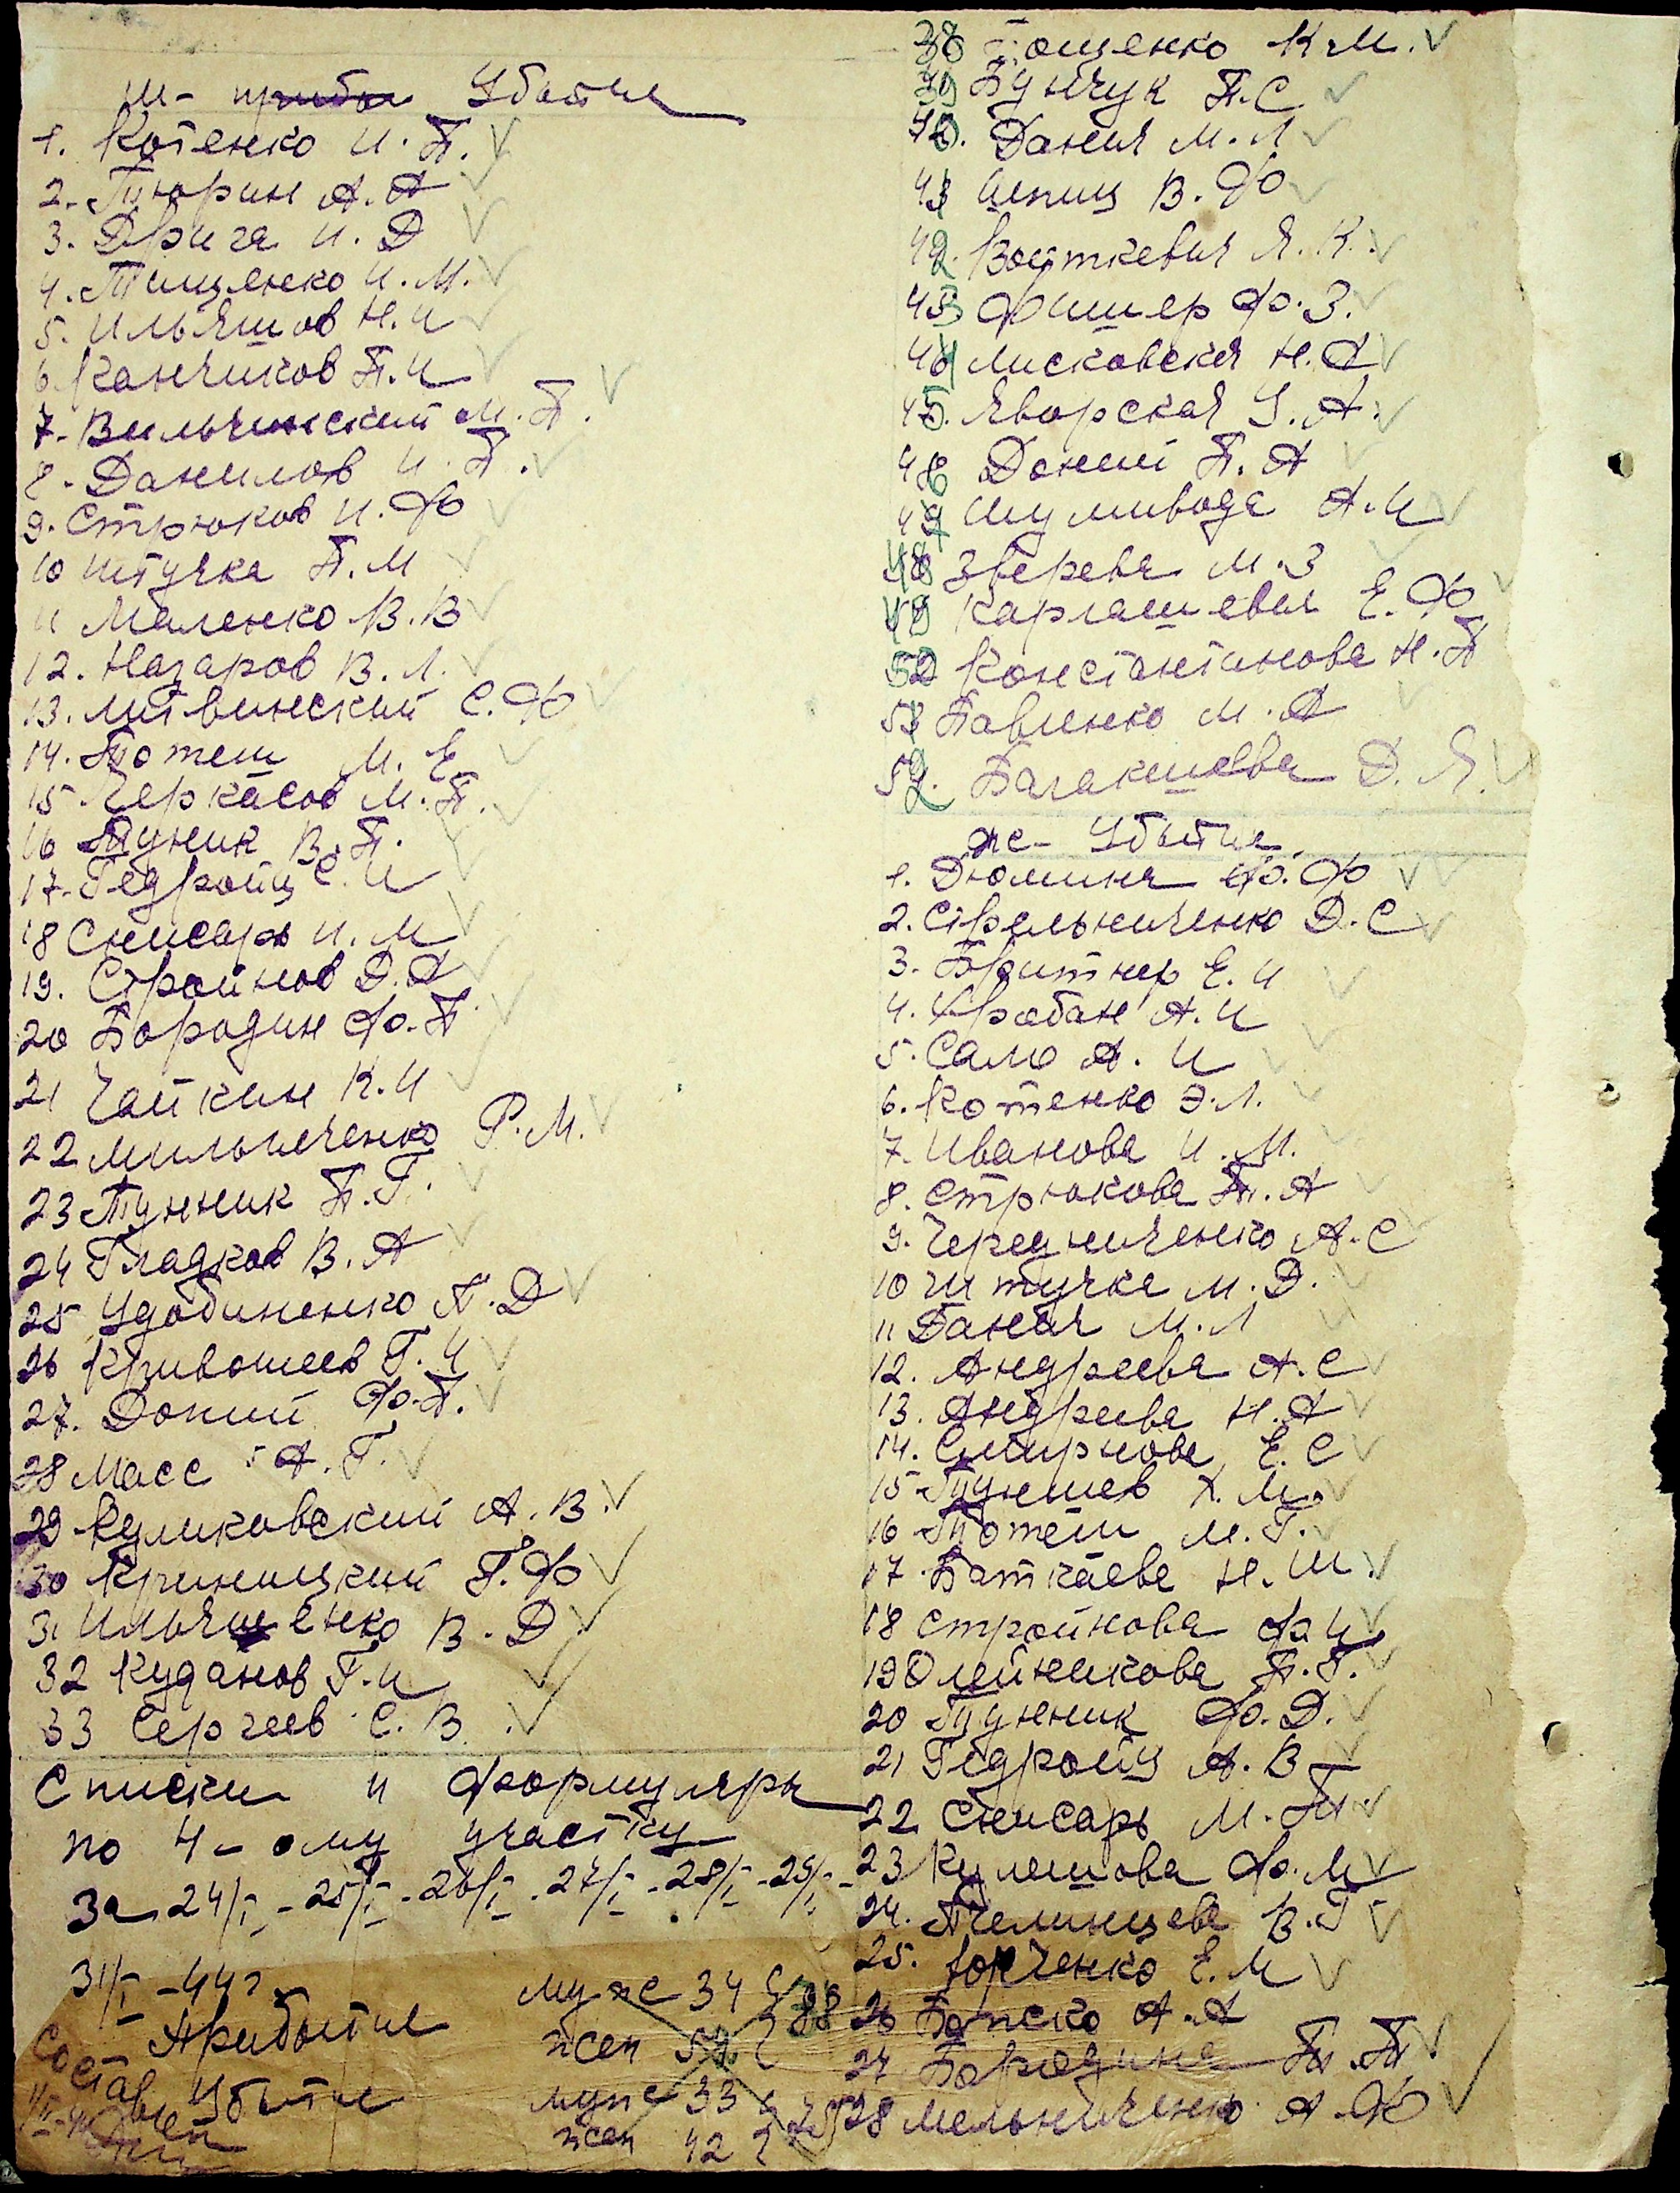 м- Убытие
1. Котенко И. П.
2. Тюрин А. А
3. Дрига И. Д
4. Тищенко И. М.
5. Ильяшов Н. И
6. Канчиков П. И
7. Вильчинский М. П.
8. Данилов И. П.
9. Стрюков И. Ф
10 Штучка П. М
11 Маленко В. В
12. Назаров В. Л.
13. Литвинский С. Ф
14. Потеш М. Е
15 Черкасов М. П.
16 Пуник В. П.
17. Гедройц С. И
18 Снисарь И. М
19. Стройнов Д. А
20 Бородин Ф. П
21 Чайкин К. И
22 Мильниченко Р. М.
23 Тунник П. Г.
24 Гладков В. А
25 Удобиненко П. Д
26 Кривошеев Г. И
27. Допий Ф. П.
28 Масс А. Г.
29 Куликовский А. В.
30 Криницкий Г. Ф
31 Ильяшенко В. Д
32 Куданов Г. И
33 Сергеев С. В.
Списки и формуляры
по 4-ому участку
За 24/I - 25/I - 26/I - 27/I - 28/I - 29/I -
31/I - 44 г.
Прибытие муж 34
жен
Составлен Убытие муж 33
жен 42
38 Тощенко К М.
39 Бунчук П. С
40. Данич М. Л
41 Шпиц В. Ф
42. Войткевич Я. К.
43 Фишер Ф. З.
44 Лисковская Н. А
45. Яворская У. А.
46 Доний П. А
47 Шумивода А. И
48 Зверева М. З
49 Карташевич Е. Ф
50 Константинова Н. П
51 Павленко М. А
52. Багакшева Д. Я.
ж- Убытие
1. Дюмина Ф. Ф
2. Стрельниченко Д. С
3. Бритнер Е. И
4. Храбан А. И
5. Сало А. И
6. Котенко Э. Л.
7. Иванова И. М.
8. Стрюкова П. А
9. Чередниченко А. С
10 Штучка М. Д.
11 Данич М. Л
12. Андреева А. С
13. Андреева Н. А
14. Смирнова Е. С
15 Тунешев Х. М.
16 Потеш М. Г.
17. Баткаева Н. Ш.
18 Стройнова Ф. И.
19 Олейникова П. Г.
20 Тунник Ф. Д.
21 Гедройц А. В
22 Снисарь М. П.
23 Кулешова Ф. М
24. Пчелинцева В. Г
25. Юрченко Е. М
26 Бапско А. А
27 Бородина П. П
28 Мельниченко А. Ф